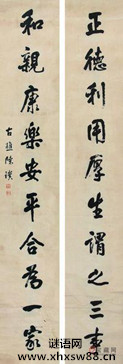 正德利用厚生謂之三事
和親康樂安平合為一家
謎语网
www.xhxsw88.cn